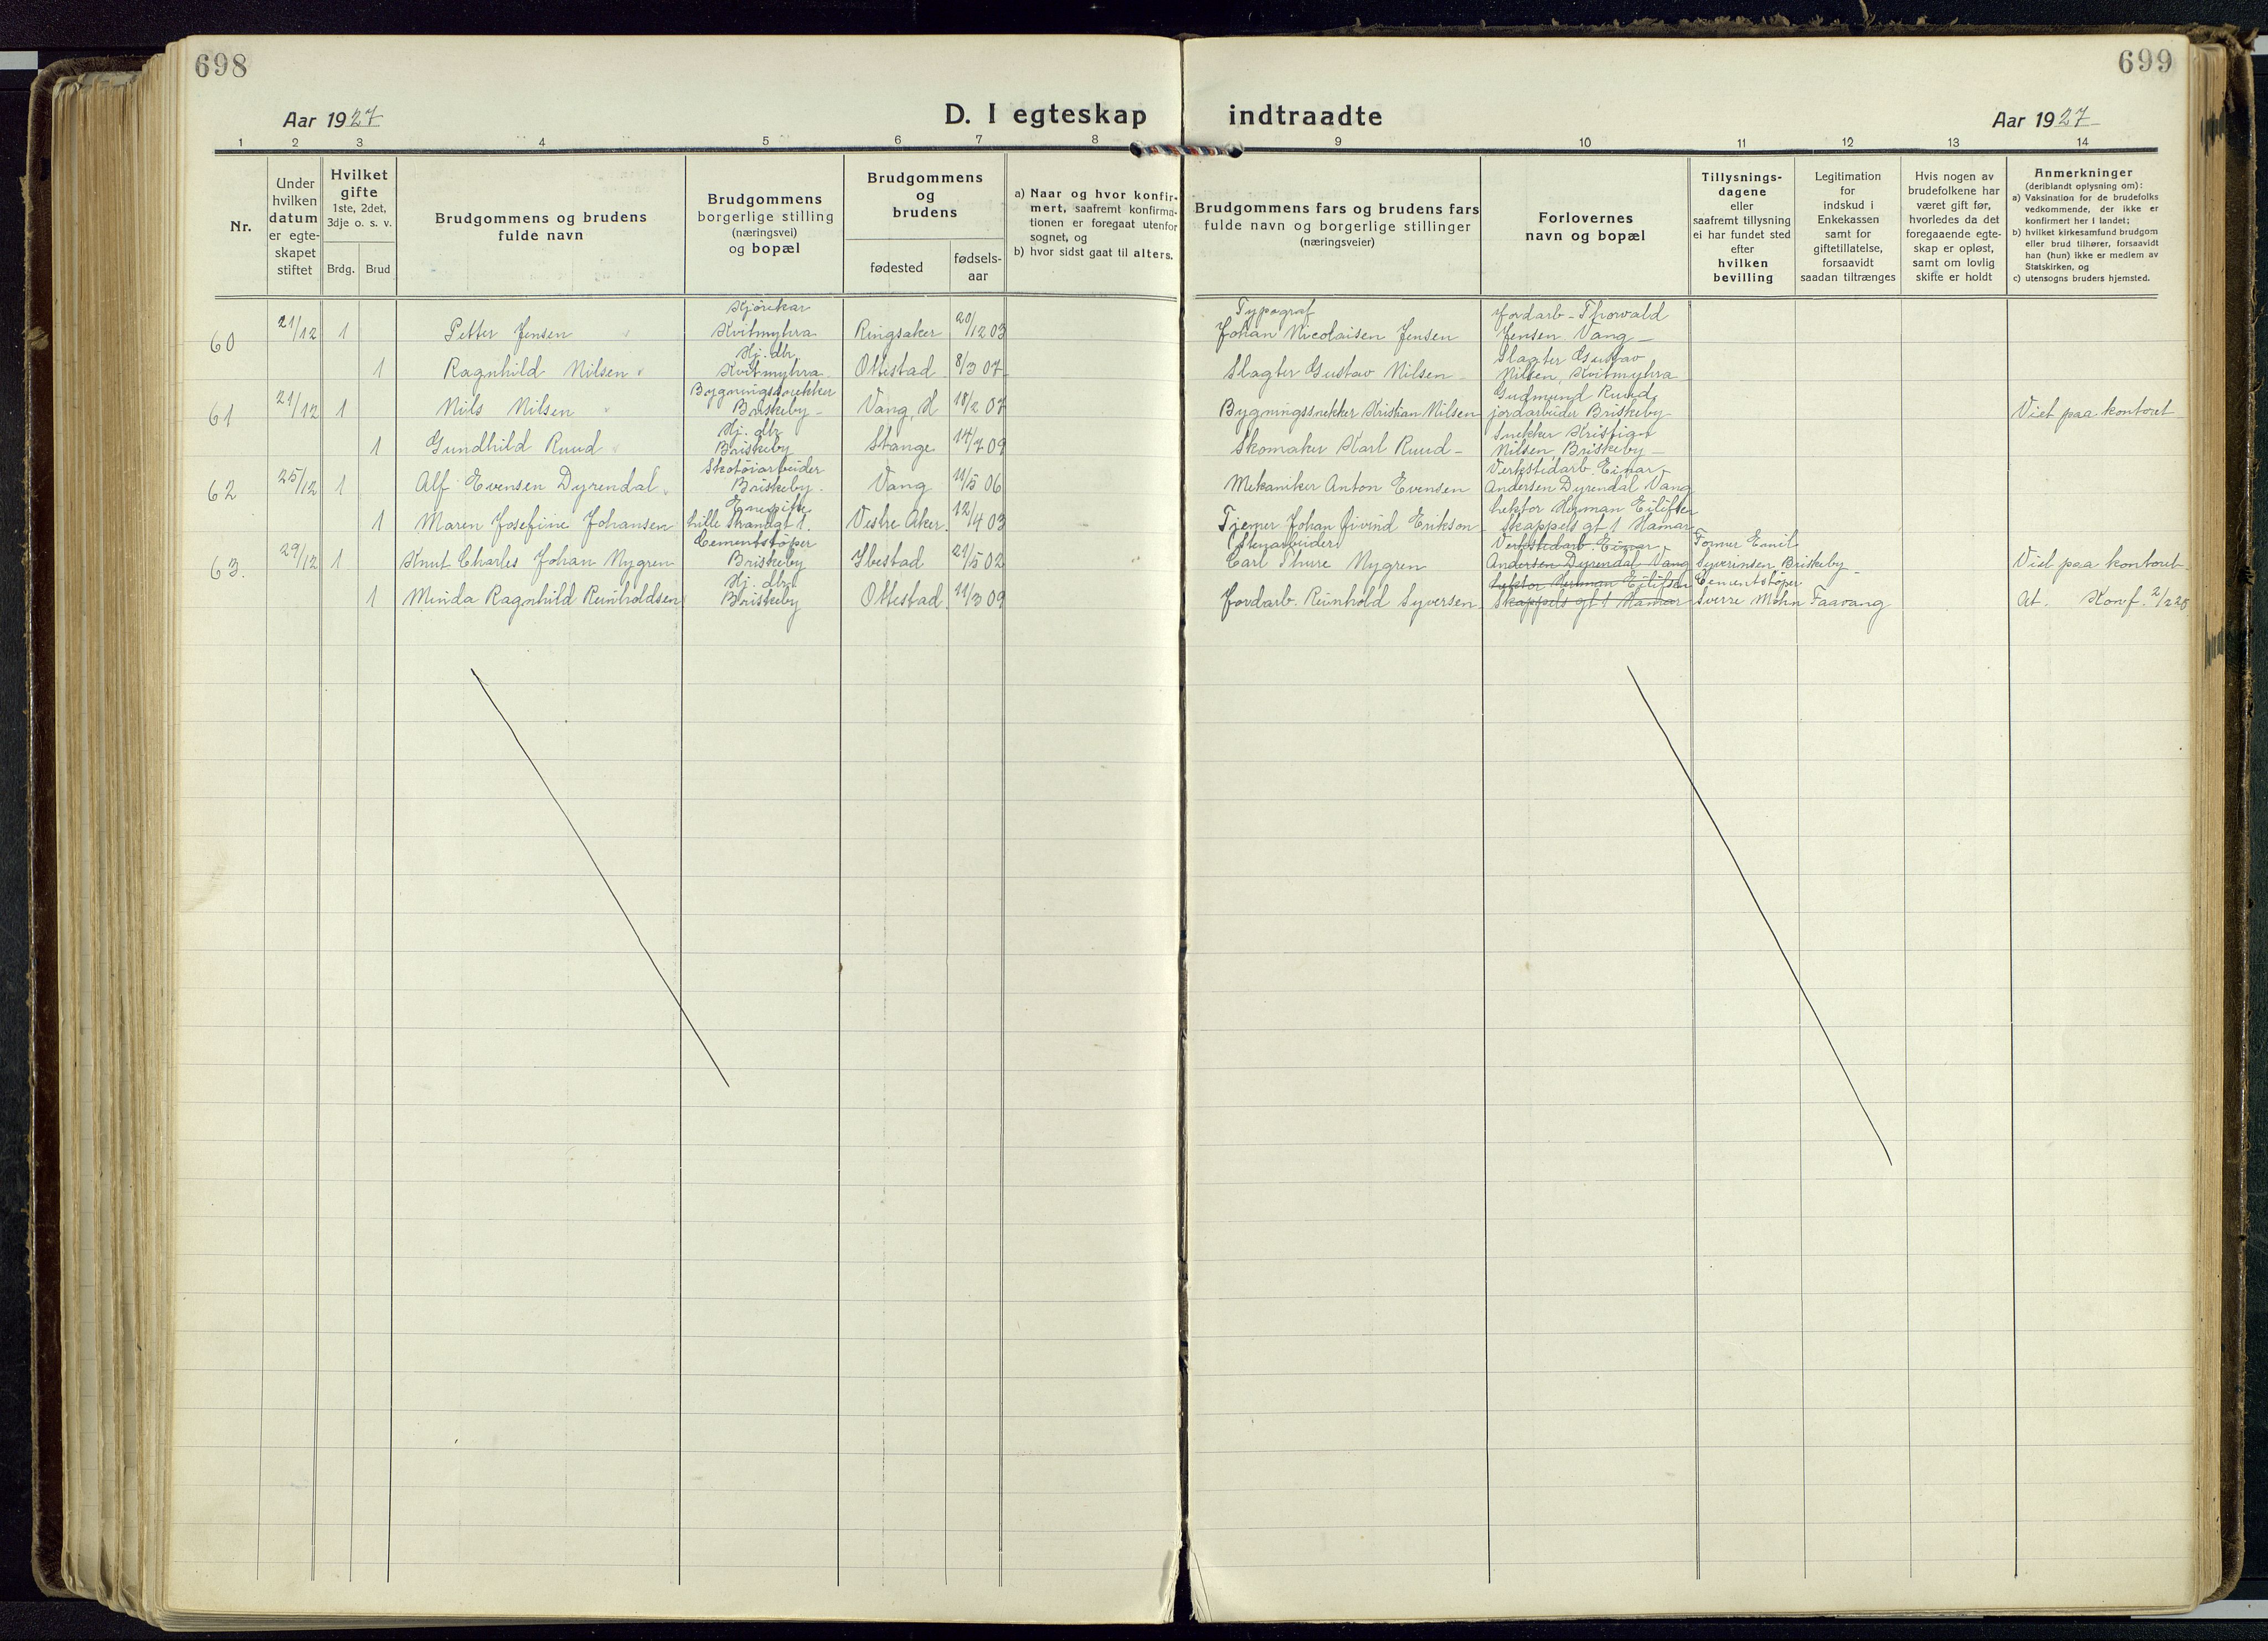 698
699
Aar 1927
D. I egteskap indtraadte
Aar 1927
1 2 3 4 5 6 7 8 9 10 11 12 13 14
Nr.
Under hvilken datum er egteskapet stiftet
Hvilket gifte 1ste, 2det, 3dje o. s. v.
Brdg. Brud
Brudgommens og brudens fulde navn
Brudgommens borgerlige stilling (næringsvei) og bopæl
Brudgommens og brudens
fødested
fødselsaar
a) Naar og hvor konfirmert, saafremt konfirmationen er foregaat utenfor sognet, og
b) hvor sidst gaat til alters.
Brudgommens fars og brudens fars fulde navn og borgerlige stillinger (næringsveier)
Forlovernes navn og bopæl
Tillysningsdagene eller saafremt tillysning ei har fundet sted efter hvilken bevilling
Legitimation for indskud i Enkekassen samt for giftetillatelse, forsaavidt saadan tiltrænges
Hvis nogen av brudefolkene har været gift før, hvorledes da det foregaaende egteskap er opløst, samt om lovlig skifte er holdt
Anmerkninger (deriblandt oplysning om):
a) Vaksination for de brudefolks vedkommende, der ikke er konfirmert her i landet;
b) hvilket kirkesamfund brudgom eller brud tilhører, forsaavidt han (hun) ikke er medlem av Statskirken, og
c) utensogns bruders hjemsted.
60 21/12 1 Petter Jensen Kjørekar Kvitmyhra Ringsaker 20/12 03 Typograf Johan Nicolaisen Jensen Jordarb - Thorvald Jensen Vang -
1 Ragnhild Nilsen Hj. dtr. Kvitmyhra Ottestad 8/3 07 Slagter Gustav Nilsen Slagter Gustav Nilsen, Kvitmyhra
61 21/12 1 Nils Nilsen Bygningssnekker Briskeby - Vang, H 18/2 07 Bygningssnekker Kristian Nilsen Gudmund Ruud, jordarbeider Briskeby Viet paa kontoret
1 Gundhild Ruud Hj. dtr Briskeby Stange 14/7 09 Skomaker Karl Ruud - Snekker Kristian Nilsen, Briskeby -
62 25/12 1 Alf Evensen Dyrendal Skotøiarbeider Briskeby. Vang 11/5 06 Mekaniker Anton Evensen Verkstedarb. Einar Andersen Dyrendal Vang
1 Maren Josefine Johansen Lille Strandgt 1. Vestre Aker. 12/4 03 Johan Eivind Erikson Lektor Herman Eilifsen Skappels gt 1 Hamar
63. 29/12 1 Knut Charles Johan Nygren Cementstøper Briskeby Ibestad 21/5 02 (Stenarbeider) Carl Thure Nygren Verkstedarb. Einar Andersen Dyrendal Vang Former Emil Syverinsen Briskeby - Viet paa kontoret
1 Minda Ragnhild Reinholdsen Hj. dtr Briskeby Ottestad 11/3 09 Jordarb. Reinhold Syversen Lektor Herman Eilifsen Skappels gt 1 Hamar Cementstøper Sverre Mohn Faavang At. Konf. 2/2 28